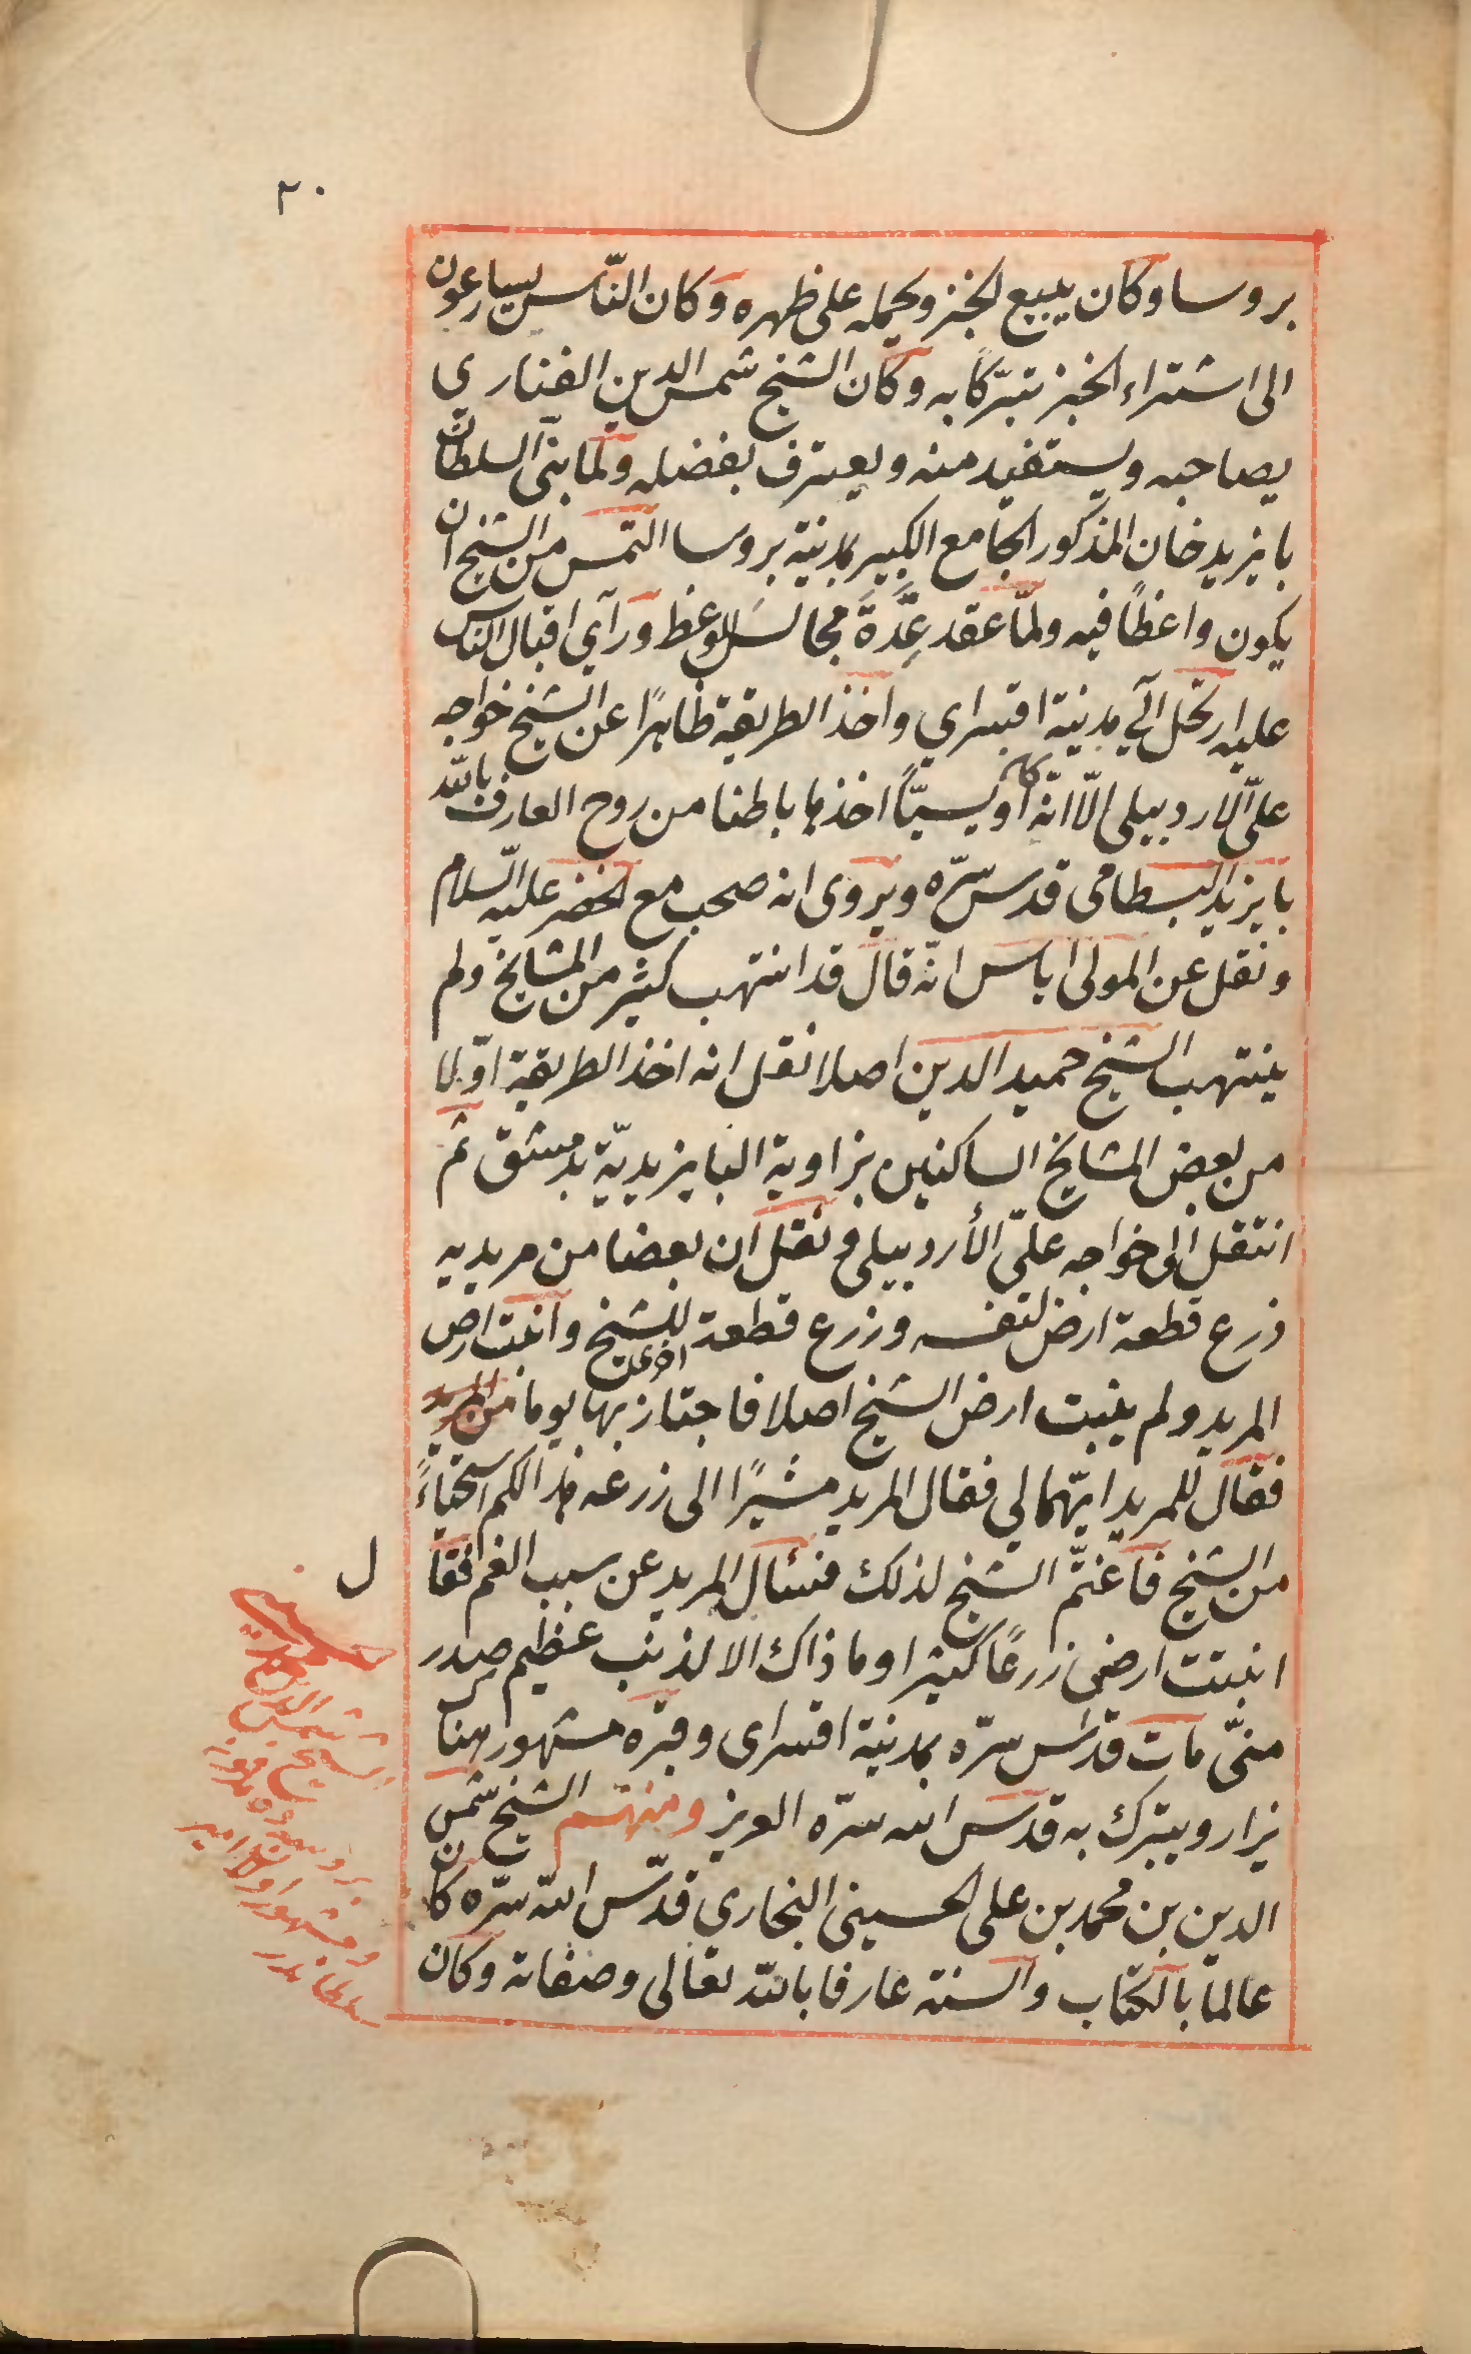 ٢٠
بروسا وكان يبيع الخبز ويحمله على ظهره وكان النّاس يسارعون
الى اشتراء الخبز تبرّكا به وكان الشيخ شمس الدين الفنارى
يصاحبه ويستفيد منه ويعترف بفضله ولمّا بنى السلطان
بايزيد خان المذكور الجامع الكبير بمدينة بروسا التمس من الشيخ ان
يكون واعظًا فيه ولمّا عقد عِدَّةَ مجالسَ للوعظ ورآى اقبال الناس
عليه ارتحل الى مدينة اقسراي واخذ الطريقة ظاهرًا عن الشيخ خواجه
علىّ الاردبيلى الّا انه كان اويسيًّا اخذها باطنا من روح العارف بالله
بايزيد البسطامى قدس سرّه ويروى انه صحب مع الخضر عليه السّلام
ونقل عن المولى اياس انّه قال قد انتهب كثير من المشايخ ولم
ينتهب الشيخ حميد الدين اصلا نقل انه اخذ الطريقة اوّلا
من بعض المشايخ الساكنين بزاوية البايزيديّة بدمشق ثم
انتقل الى خواجه علىّ الأردبيلى ونقل ان بعضا من مريديه
زرع قطعة ارض لنفسه وزرع قطعة اخرى للشيخ وانبتت ارض
المريد ولم ينبت ارض الشيخ اصلا فاجتاز بها يوما من المريد
فقال للمريد ايّهما لي فقال المريد مشيرًا الى زرعه هذا لكم استحياءً
من الشيخ فاغتمّ الشيخ لذلك فسئال المريد عن سبب الغم فقا
ل
انبتت ارضى زرعًا كثيرا وما ذاك الا لذنب عظيم صدر
منّى مات قدّس سرّه بمدينة اقسراى وقبره مشهور هنا
يزار ويتبرك به قدس الله سرّه العزيز ومنهم الشيخ شمس
الدين بن محمد بن على الحسينى البخاري قدّس الله سرّه كان
عالما بالكتاب والسنة عارفا بالله تعالى وصفاته وكان
شيخ شمس الدين
بروسه ده مدفوندر
ومشهور اولان امير
سلطاندر